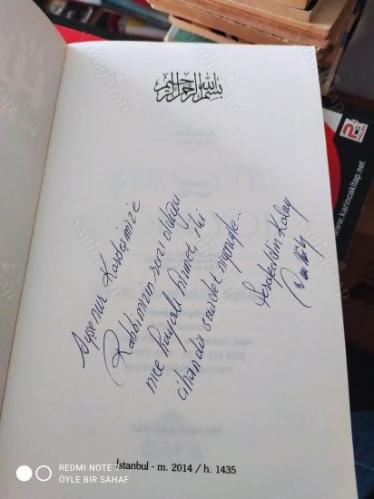 بسم الله الرحمن الرحيم
Ayşenur Kardeşimize
Rabbimizin razı olduğu
nice hayırlı hizmet, iki
cihanda saadet niyazıyla..
Kalay
İstanbul - m. 2014 / h. 1435
www.karincakitap.net
REDMI NOTE 7
ÖYLE BİR SAHAF